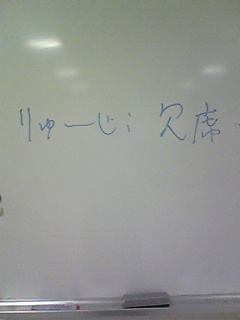 りゅーじ: 欠席